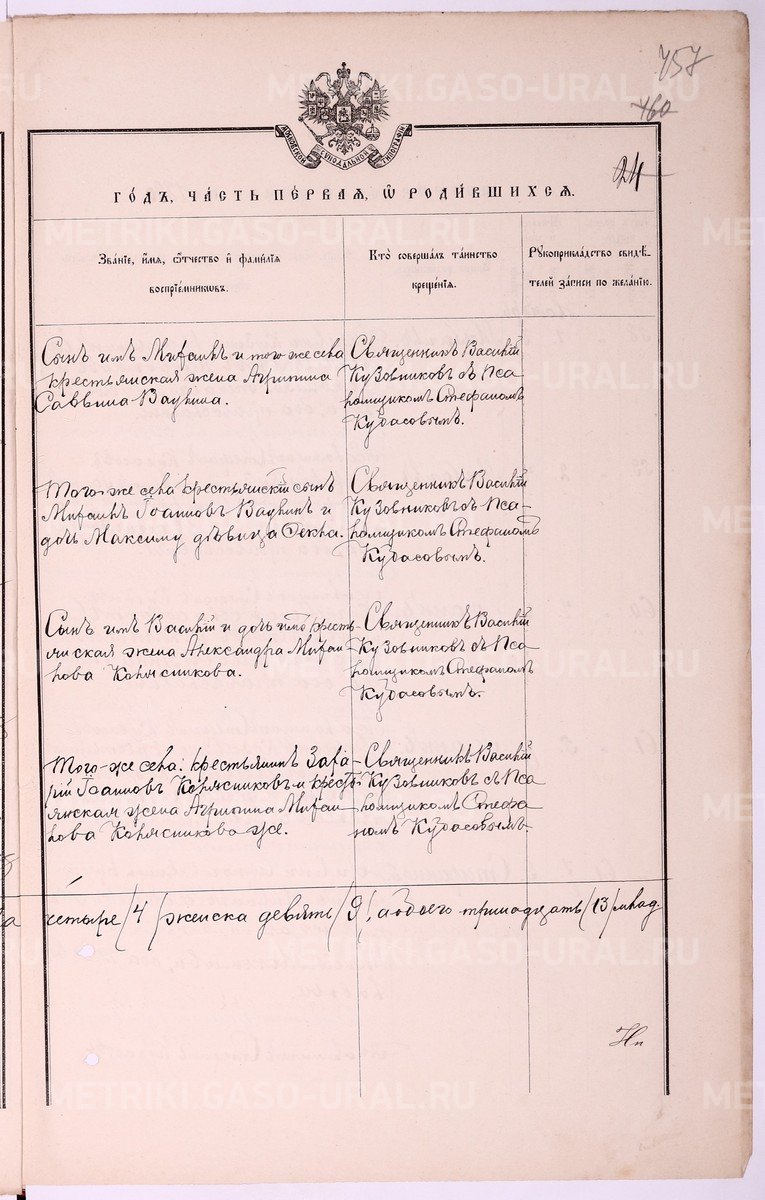 757
460
24
МОСКОВСКОЙ СУНОДАЛЬНОЙ ТИПОГРАФІИ
ГО́ДЪ, ЧА́СТЬ ПЕ́РВАЯ, Ѿ РОДИ́ВШИХСЯ.
Зва́ніе, и҆́мѧ, ѻ҆́тчество и҆ фами́лїѧ
воспрїе́мникѡвъ.
Кто̀ соверша́лъ та́инство
креще́нїѧ.
Рꙋкоприкла́дство свидѣ́-
телей за́писи по жела́нїю.
Сынъ ихъ Михаилъ и того же села
крестьянская жена Агрипина
Саввина
Священникъ Василій
Кузовниковъ съ Пса-
ломщикомъ Стефаномъ
Кубасовымъ.
Того-же села крестьянскій сынъ
Михаилъ Іоанновъ и
дочь Максиму дѣвица Фекла.
Священникъ Василій
Кузовниковъ съ Пса-
ломщикомъ Стефаномъ
Кубасовымъ.
Сынъ ихъ Василій и дочь кресть-
янская жена Александра Михаи-
лова Колясникова.
Священникъ Василій
Кузовниковъ съ Пса-
ломщикомъ Стефаномъ
Кубасовымъ.
Того-же села: крестьянинъ Заха-
рій Іоанновъ Колясниковъ и кресть-
янская жена Агрипина Михаи-
лова Колясникова же.
Священникъ Василій
Кузовниковъ съ Пса-
ломщикомъ Стефа-
номъ Кубасовымъ.
четыре /4/ женска девять /9/, а обоего тринадцать /13/ млад.
METRIKI.GASO-URAL.RU